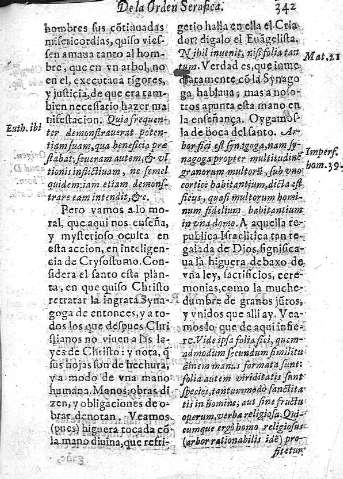 De la Orden Serafica.
342
hombres sus cõtinuadas
misericordias, quiso vies-
sen amaua tanto al hom-
bre, que en vn arbol, no
en el, executaua rigores,
y justicia, de que era tam-
bien necessario hazer ma
nifestacion. Quia frequen-
ter demonstrauerat poten-
tiam suam, qua beneficia præ
stabat, seueram autem, & vl
tionis inflictiuam, ne semel
quidem: iam etiam demons-
trare eam intendit, &c.
Euth. ibi
Pero vamos a lo mo-
ral, que aqui nos enseña,
y mysterioso oculta en
esta accion, en inteligencia
de Crysostomo. Con-
sidera el santo esta plan-
ta, en que quiso Christo
retratar la ingrata Syna-
goga de entonces, y a to-
dos los que despues Chri
stianos no viuen a las le-
yes de Christo: y nota, q̃
sus hojas son de hechura,
y a modo de vna mano
humana. Manos, obras di
zen, y obligaciones de o-
brar denotan. Veamos
(pues) higuera tocada cõ
la mano diuina, que refri-
gerio halla en ella el Cria
dor: digalo el Euãgelista.
Nihil inuenit, nisi folia tan
tum. Verdad es, que inme
diatamente cõ la Synago
ga hablaua; mas a noso-
tros apunta esta mano en
la enseñança. Oygamos-
la de boca del santo. Ar-
bor fici est synagoga, nam sy-
nagoga propter multitudinẽ
granorum multorũ, sub vno
cortice habitantium, dicta est
ficus, quasi multorum homi-
num fidelium habitantium
in vna domo. A aquella re-
publica Israelitica tan re-
galada de Dios, significa-
ua la higuera debaxo de
vna ley, sacrificios, cere-
monias, como la muche-
dumbre de granos jũtos,
y vnidos que alli ay. Vea-
mos lo que de aqui infie-
re. Vide ipsa folia fici, quem-
admodum secundum similitu
dinem manus formata sunt:
folia autem viriditatis sunt
species, tantummodo sanctita-
tis in homine, aut sine fructu
operum, verba religiosa. Qui-
cumque ergo homo religiosus
(arbor rationabilis idẽ) pro-
fitetur,
Mat. 21
Imperf.
hom. 39.